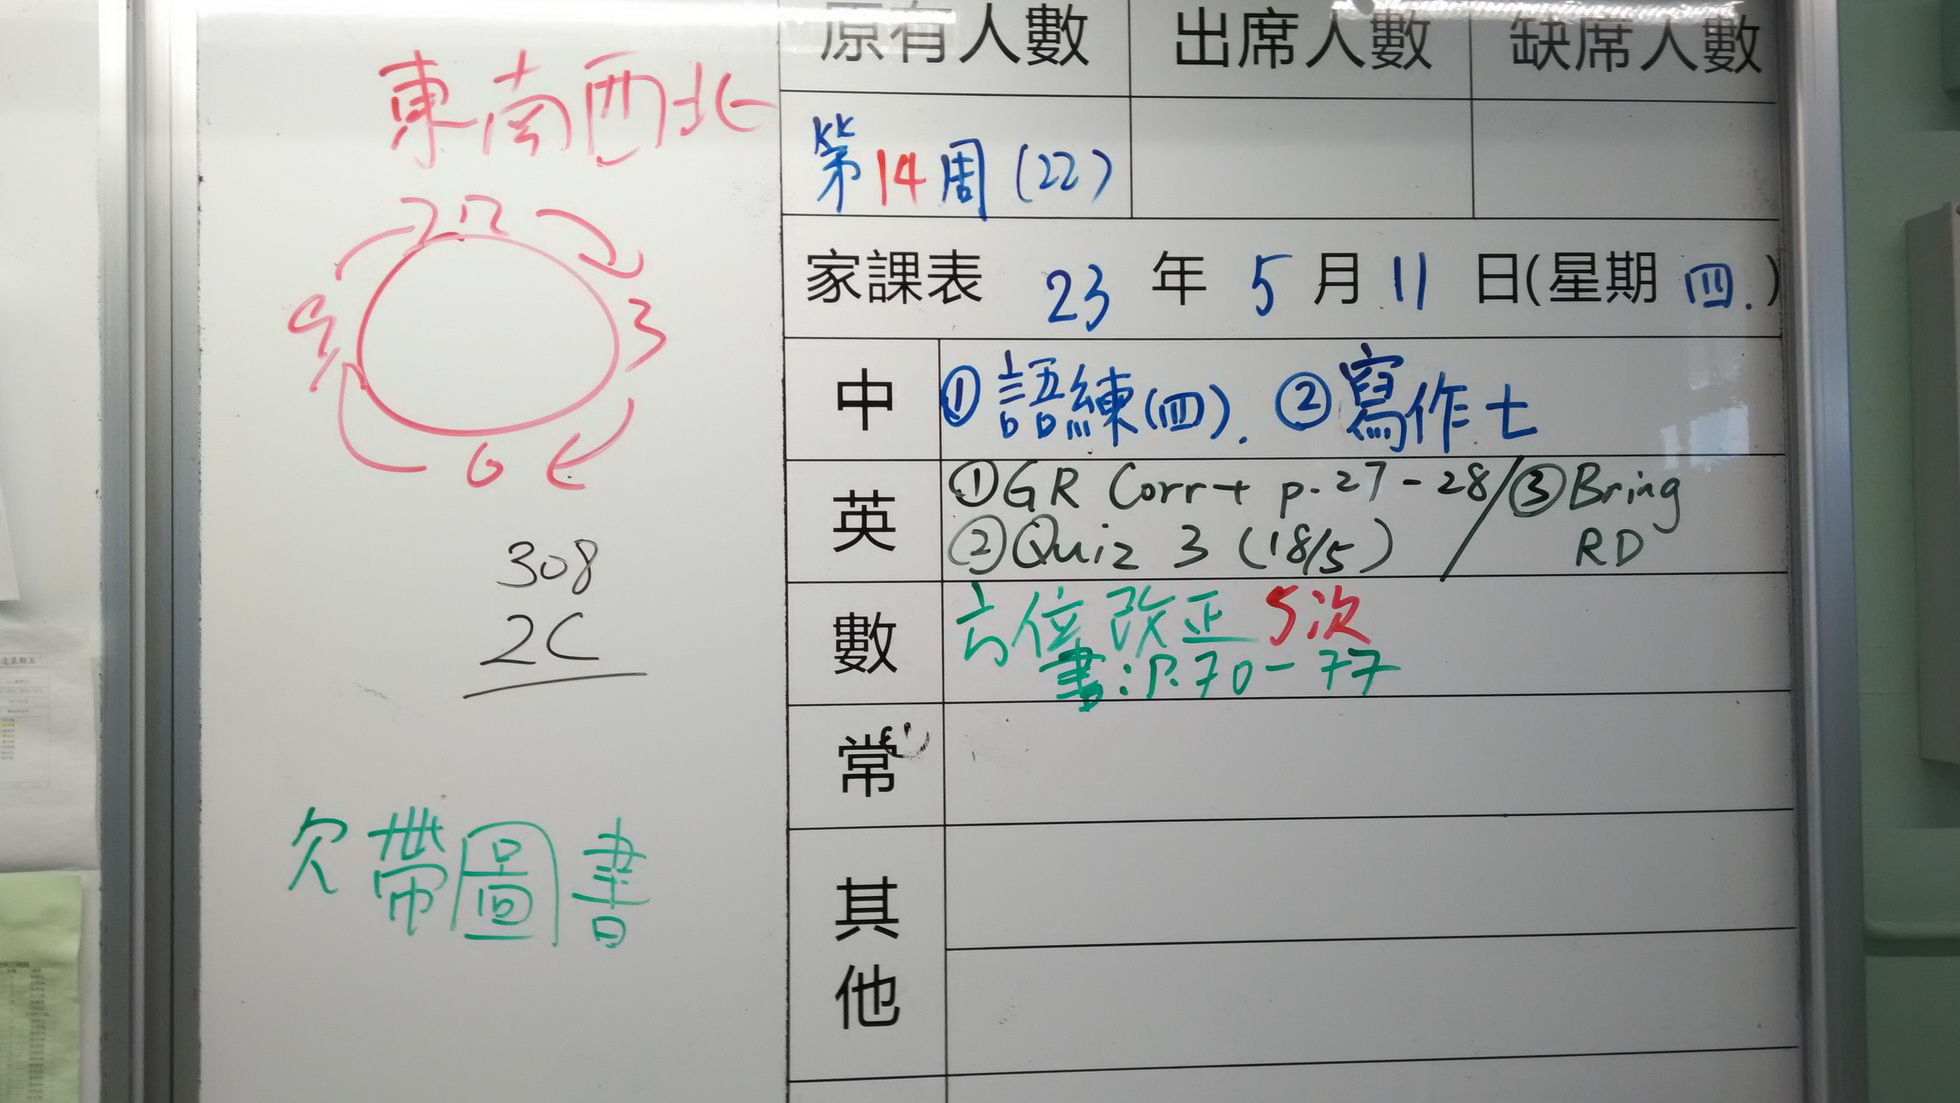 東南西北
12
3
6
9
308
2C
欠帶圖書
原有人數 出席人數 缺席人數
第14周(22)
家課表 23年5月11日(星期四.)
中 ①語練(四). ②寫作七
英 ①GR Corr+ p.27-28/③Bring
②Quiz 3 (18/5) RD
數 六位改正 5次
書:P.70-77
常
其他